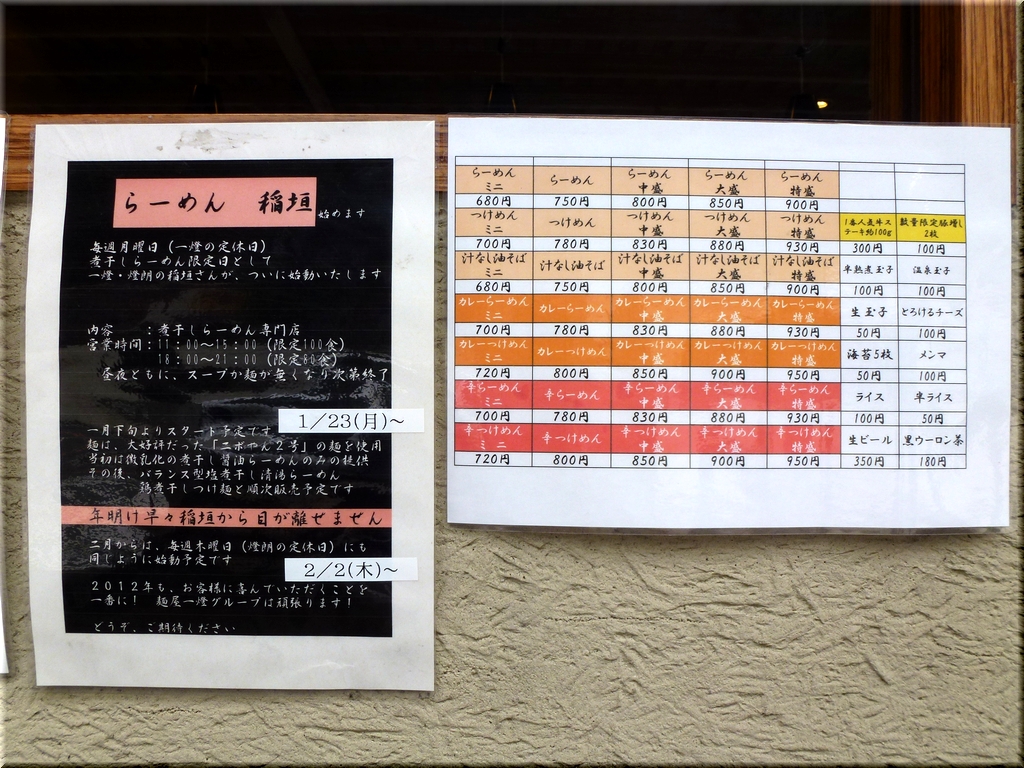 らーめん 稲垣 始めます
毎週月曜日（一燈の定休日）
煮干しらーめん限定日として
一燈・燈朗の稲垣さんが、ついに始動いたします
内容 ：煮干しらーめん専門店
営業時間：11：00〜15：00（限定100食）
18：00〜21：00（限定80食）
昼夜ともに、スープか麺が無くなり次第終了
1/23(月)~
一月下旬よりスタート予定です
麺は、大好評だった「ニボやん2号」の麺を使用
当初は微乳化の煮干し醤油らーめんのみの提供
その後、バランス型塩煮干し清湯らーめん
鶏煮干しつけ麺と順次販売予定です
年明け早々稲垣から目が離せません
二月からは、毎週木曜日（燈朗の定休日）にも
同じように始動予定です
2/2(木)~
2012年も、お客様に喜んでいただくことを
一番に！ 麺屋一燈グループは頑張ります！
どうぞ、ご期待ください
らーめん らーめん らーめん らーめん らーめん
ミニ 中盛 大盛 特盛
680円 750円 800円 850円 900円
つけめん つけめん つけめん つけめん つけめん 1番人気牛ス 数量限定豚増し
ミニ 中盛 大盛 特盛 テーキ約100g 2枚
700円 780円 830円 880円 930円 300円 100円
汁なし油そば 汁なし油そば 汁なし油そば 汁なし油そば 汁なし油そば 半熟煮玉子 温泉玉子
ミニ 中盛 大盛 特盛
680円 750円 800円 850円 900円 100円 100円
カレーらーめん カレーらーめん カレーらーめん カレーらーめん カレーらーめん 生玉子 とろけるチーズ
ミニ 中盛 大盛 特盛
700円 780円 830円 880円 930円 50円 100円
カレーつけめん カレーつけめん カレーつけめん カレーつけめん カレーつけめん 海苔5枚 メンマ
ミニ 中盛 大盛 特盛
720円 800円 850円 900円 950円 50円 100円
辛らーめん 辛らーめん 辛らーめん 辛らーめん 辛らーめん ライス 半ライス
ミニ 中盛 大盛 特盛
700円 780円 830円 880円 930円 100円 50円
辛つけめん 辛つけめん 辛つけめん 辛つけめん 辛つけめん 生ビール 黒ウーロン茶
ミニ 中盛 大盛 特盛
720円 800円 850円 900円 950円 350円 180円